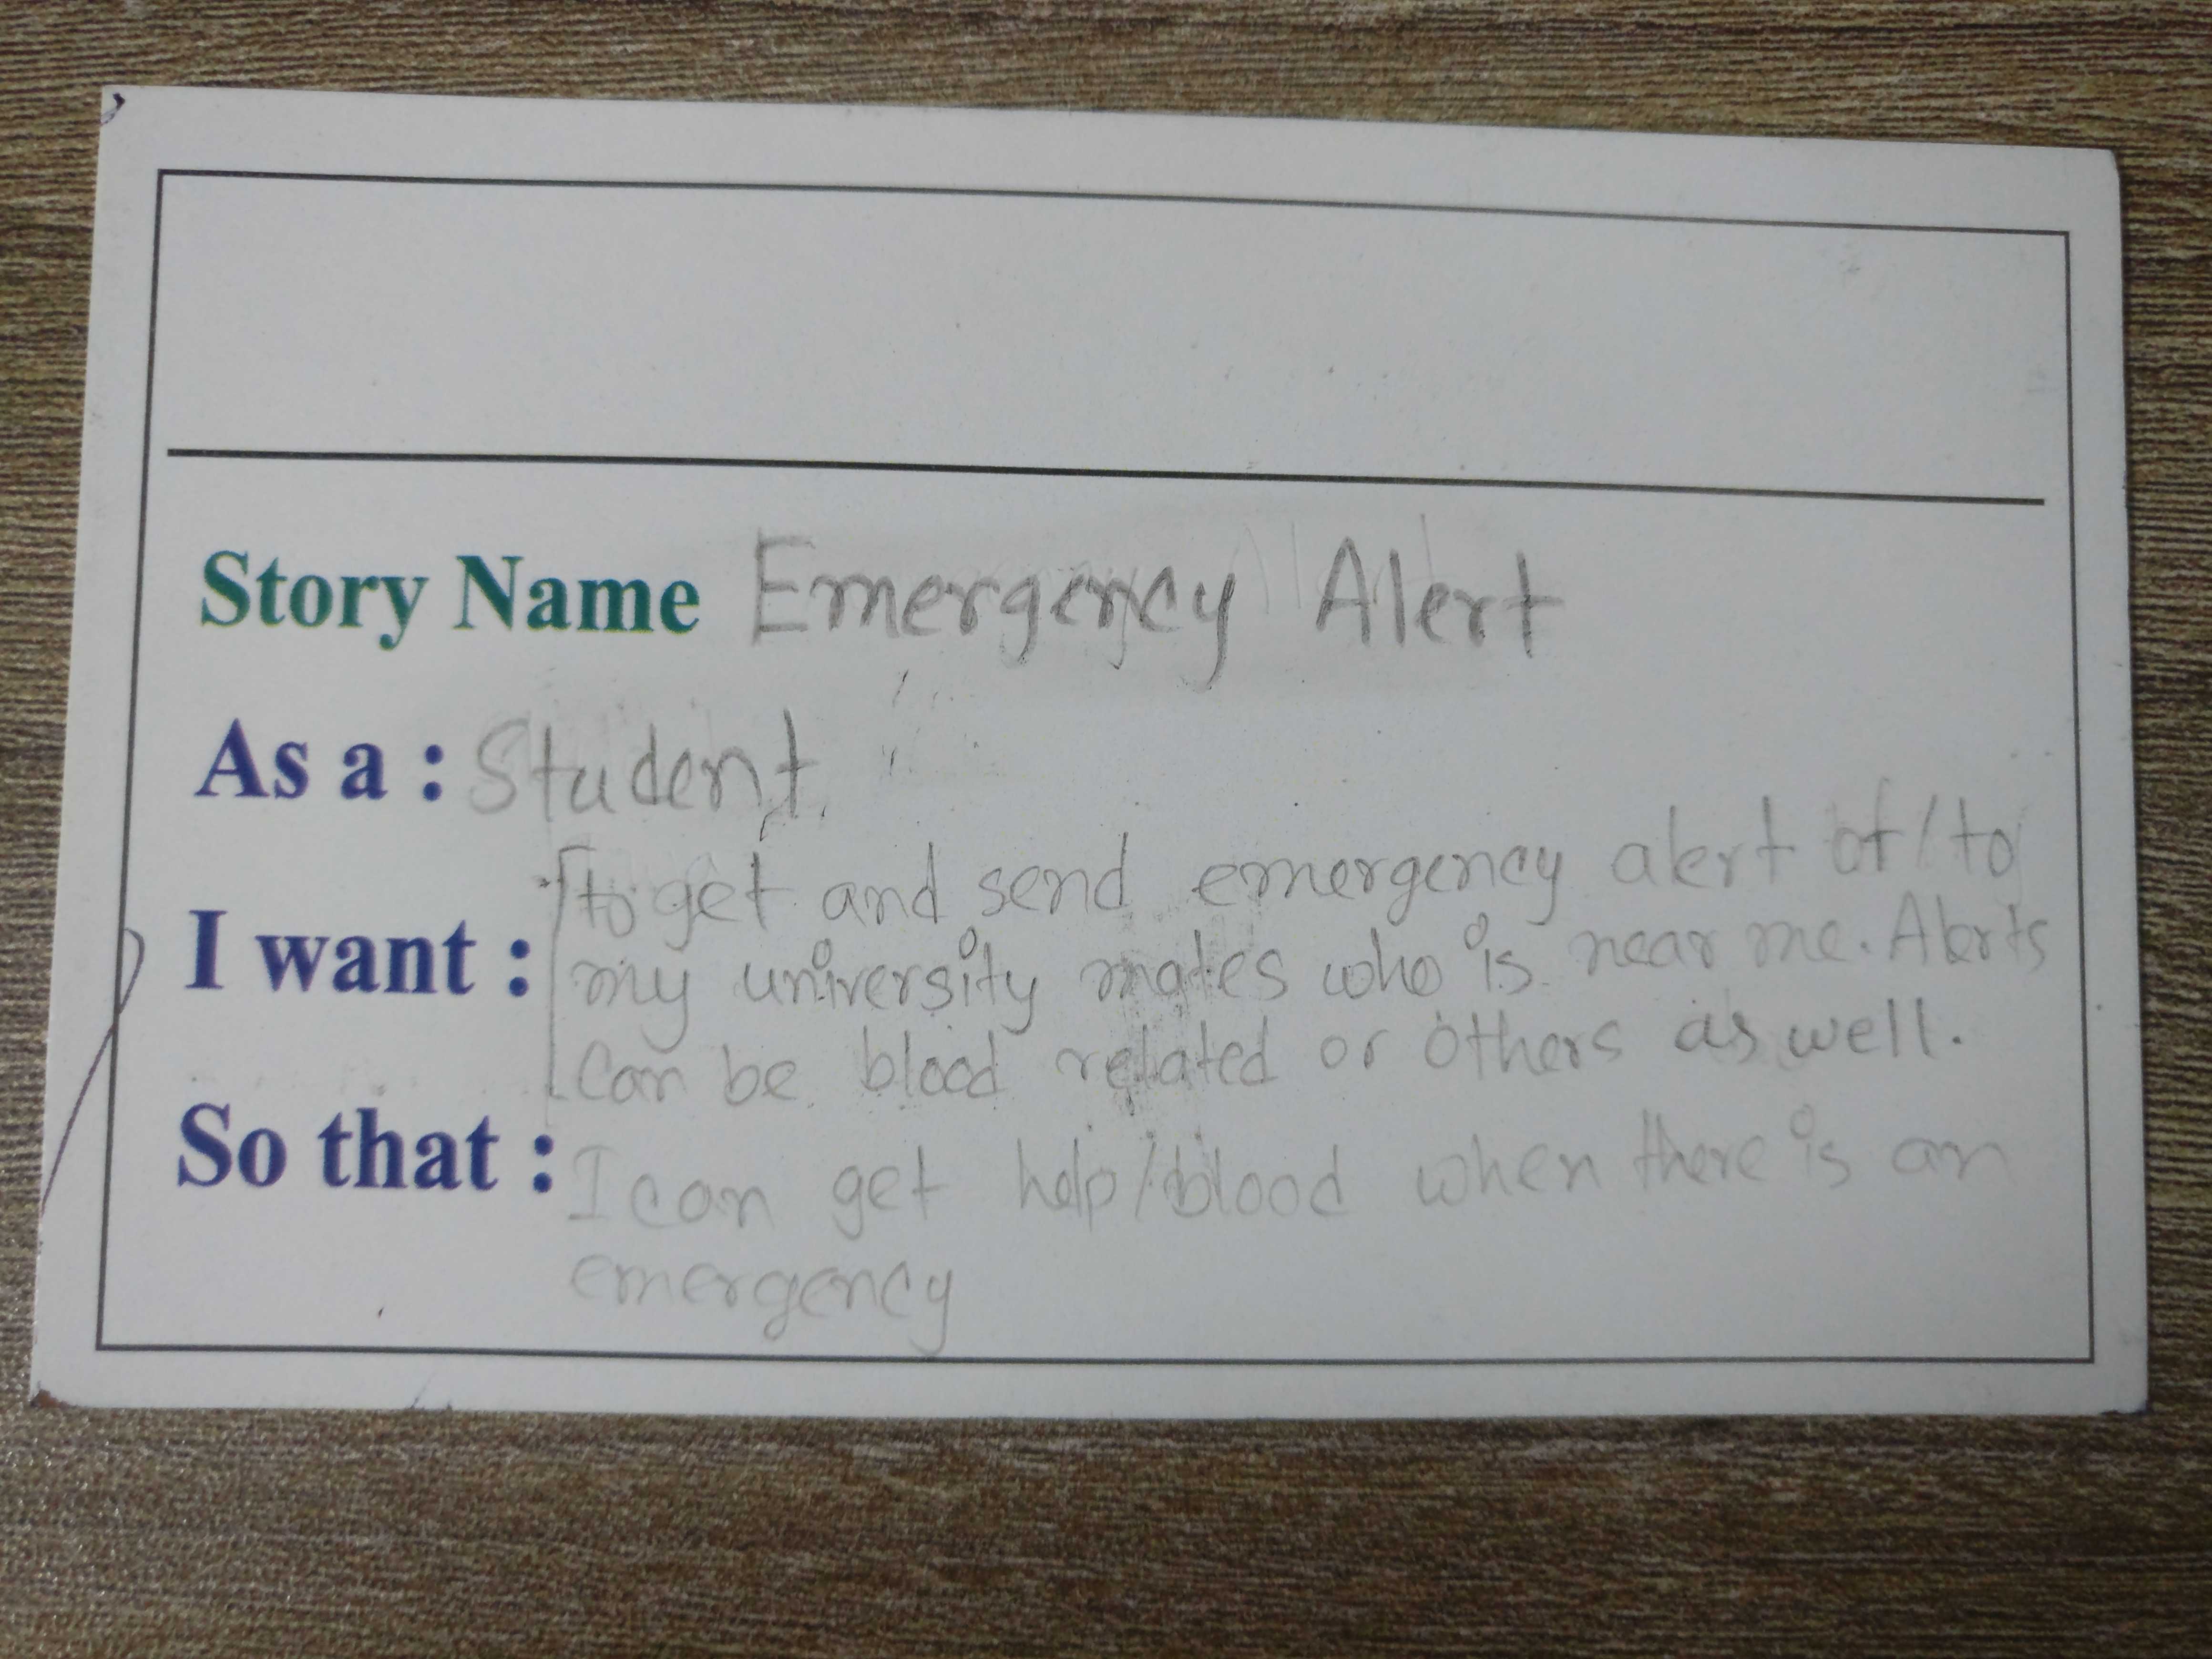 Story Name Emergency Alert
As a : Student
I want : to get and send emergency alert of/to
my university mates who is near me. Alerts
can be blood related or others as well.
So that : I can get help/blood when there is an
emergency